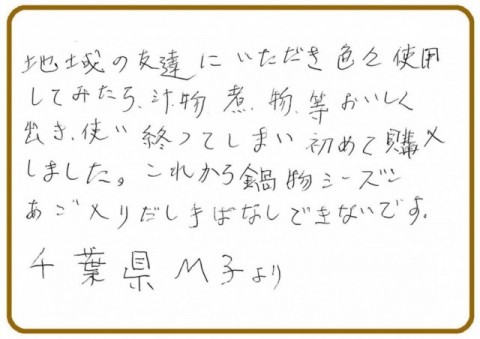 地域の友達にいただき色々使用
してみたら、汁物、煮物、等おいしく
出き、使い終ってしまい初めて購入
しました。これから鍋物シーズン
あご入りだし手ばなしできないです。
千葉県M子より